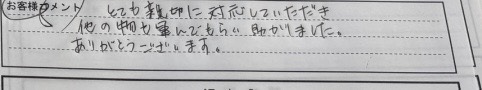 お客様コメント
とても親切に対応していただき
他の物も運んでもらい助かりました。
ありがとうございます。